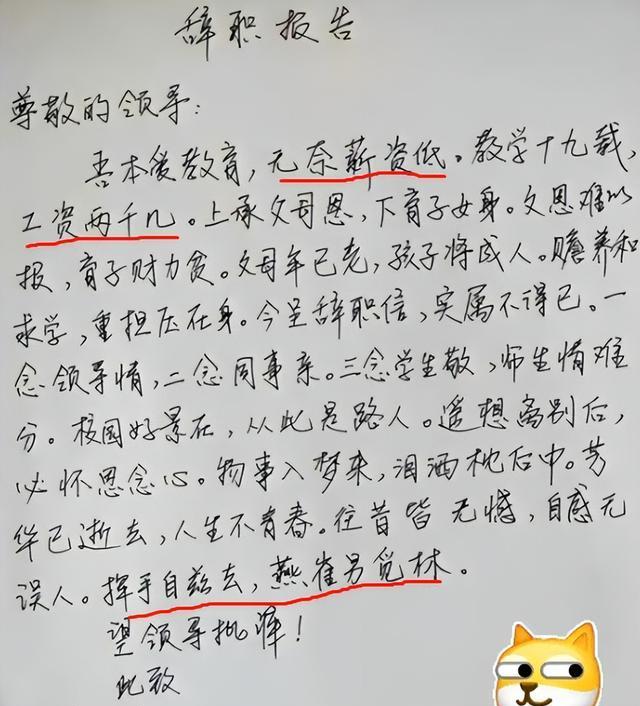 辞职报告
尊敬的领导:
吾本爱教育,无奈薪资低。教学十九载,
工资两千几。上承父母恩,下育子女身。父恩难以
报,育子财力贫。父母年已老,孩子将成人。赡养和
求学,重担压在身。今呈辞职信,实属不得已。一
念领导情,二念同事亲。三念学生敬,师生情难
分。校园好景在,从此是路人。遥想离别后,
必怀思念心。物事入梦来,泪洒枕后中。芳
华已逝去,人生不青春。往昔皆无憾,自感无
误人。挥手自兹去,燕雀另觅林。
望领导批准!
此致